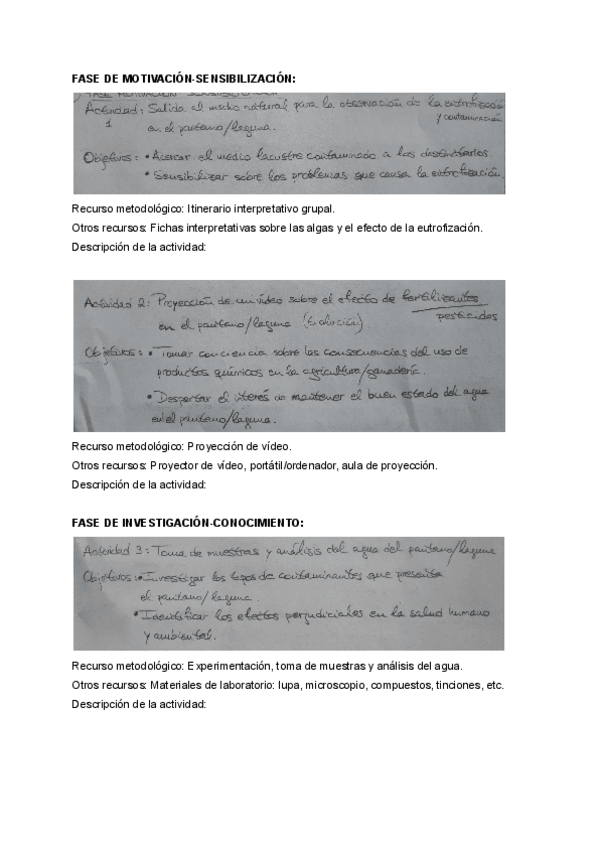 FASE DE MOTIVACIÓN-SENSIBILIZACIÓN:
Actividad: Salida al medio natural para la observación de la eutrofización
1 en el pantano/laguna. y contaminación
Objetivos: • Acercar el medio lacustre contaminado a los destinatarios.
• Sensibilizar sobre los problemas que causa la eutrofización.
Recurso metodológico: Itinerario interpretativo grupal.
Otros recursos: Fichas interpretativas sobre las algas y el efecto de la eutrofización.
Descripción de la actividad:
Actividad 2: Proyección de un vídeo sobre el efecto de fertilizantes
pesticidas
en el pantano/laguna (evolución).
Objetivos: • Tomar conciencia sobre las consecuencias del uso de
productos químicos en la agricultura/ganadería.
• Despertar el interés de mantener el buen estado del agua
en el pantano/laguna.
Recurso metodológico: Proyección de vídeo.
Otros recursos: Proyector de vídeo, portátil/ordenador, aula de proyección.
Descripción de la actividad:
FASE DE INVESTIGACIÓN-CONOCIMIENTO:
Actividad 3: Toma de muestras y análisis del agua del pantano/laguna
Objetivos: • Investigar los tipos de contaminantes que presenta
el pantano/laguna.
• Identificar los efectos perjudiciales en la salud humana
y ambiental.
Recurso metodológico: Experimentación, toma de muestras y análisis del agua.
Otros recursos: Materiales de laboratorio: lupa, microscopio, compuestos, tinciones, etc.
Descripción de la actividad: